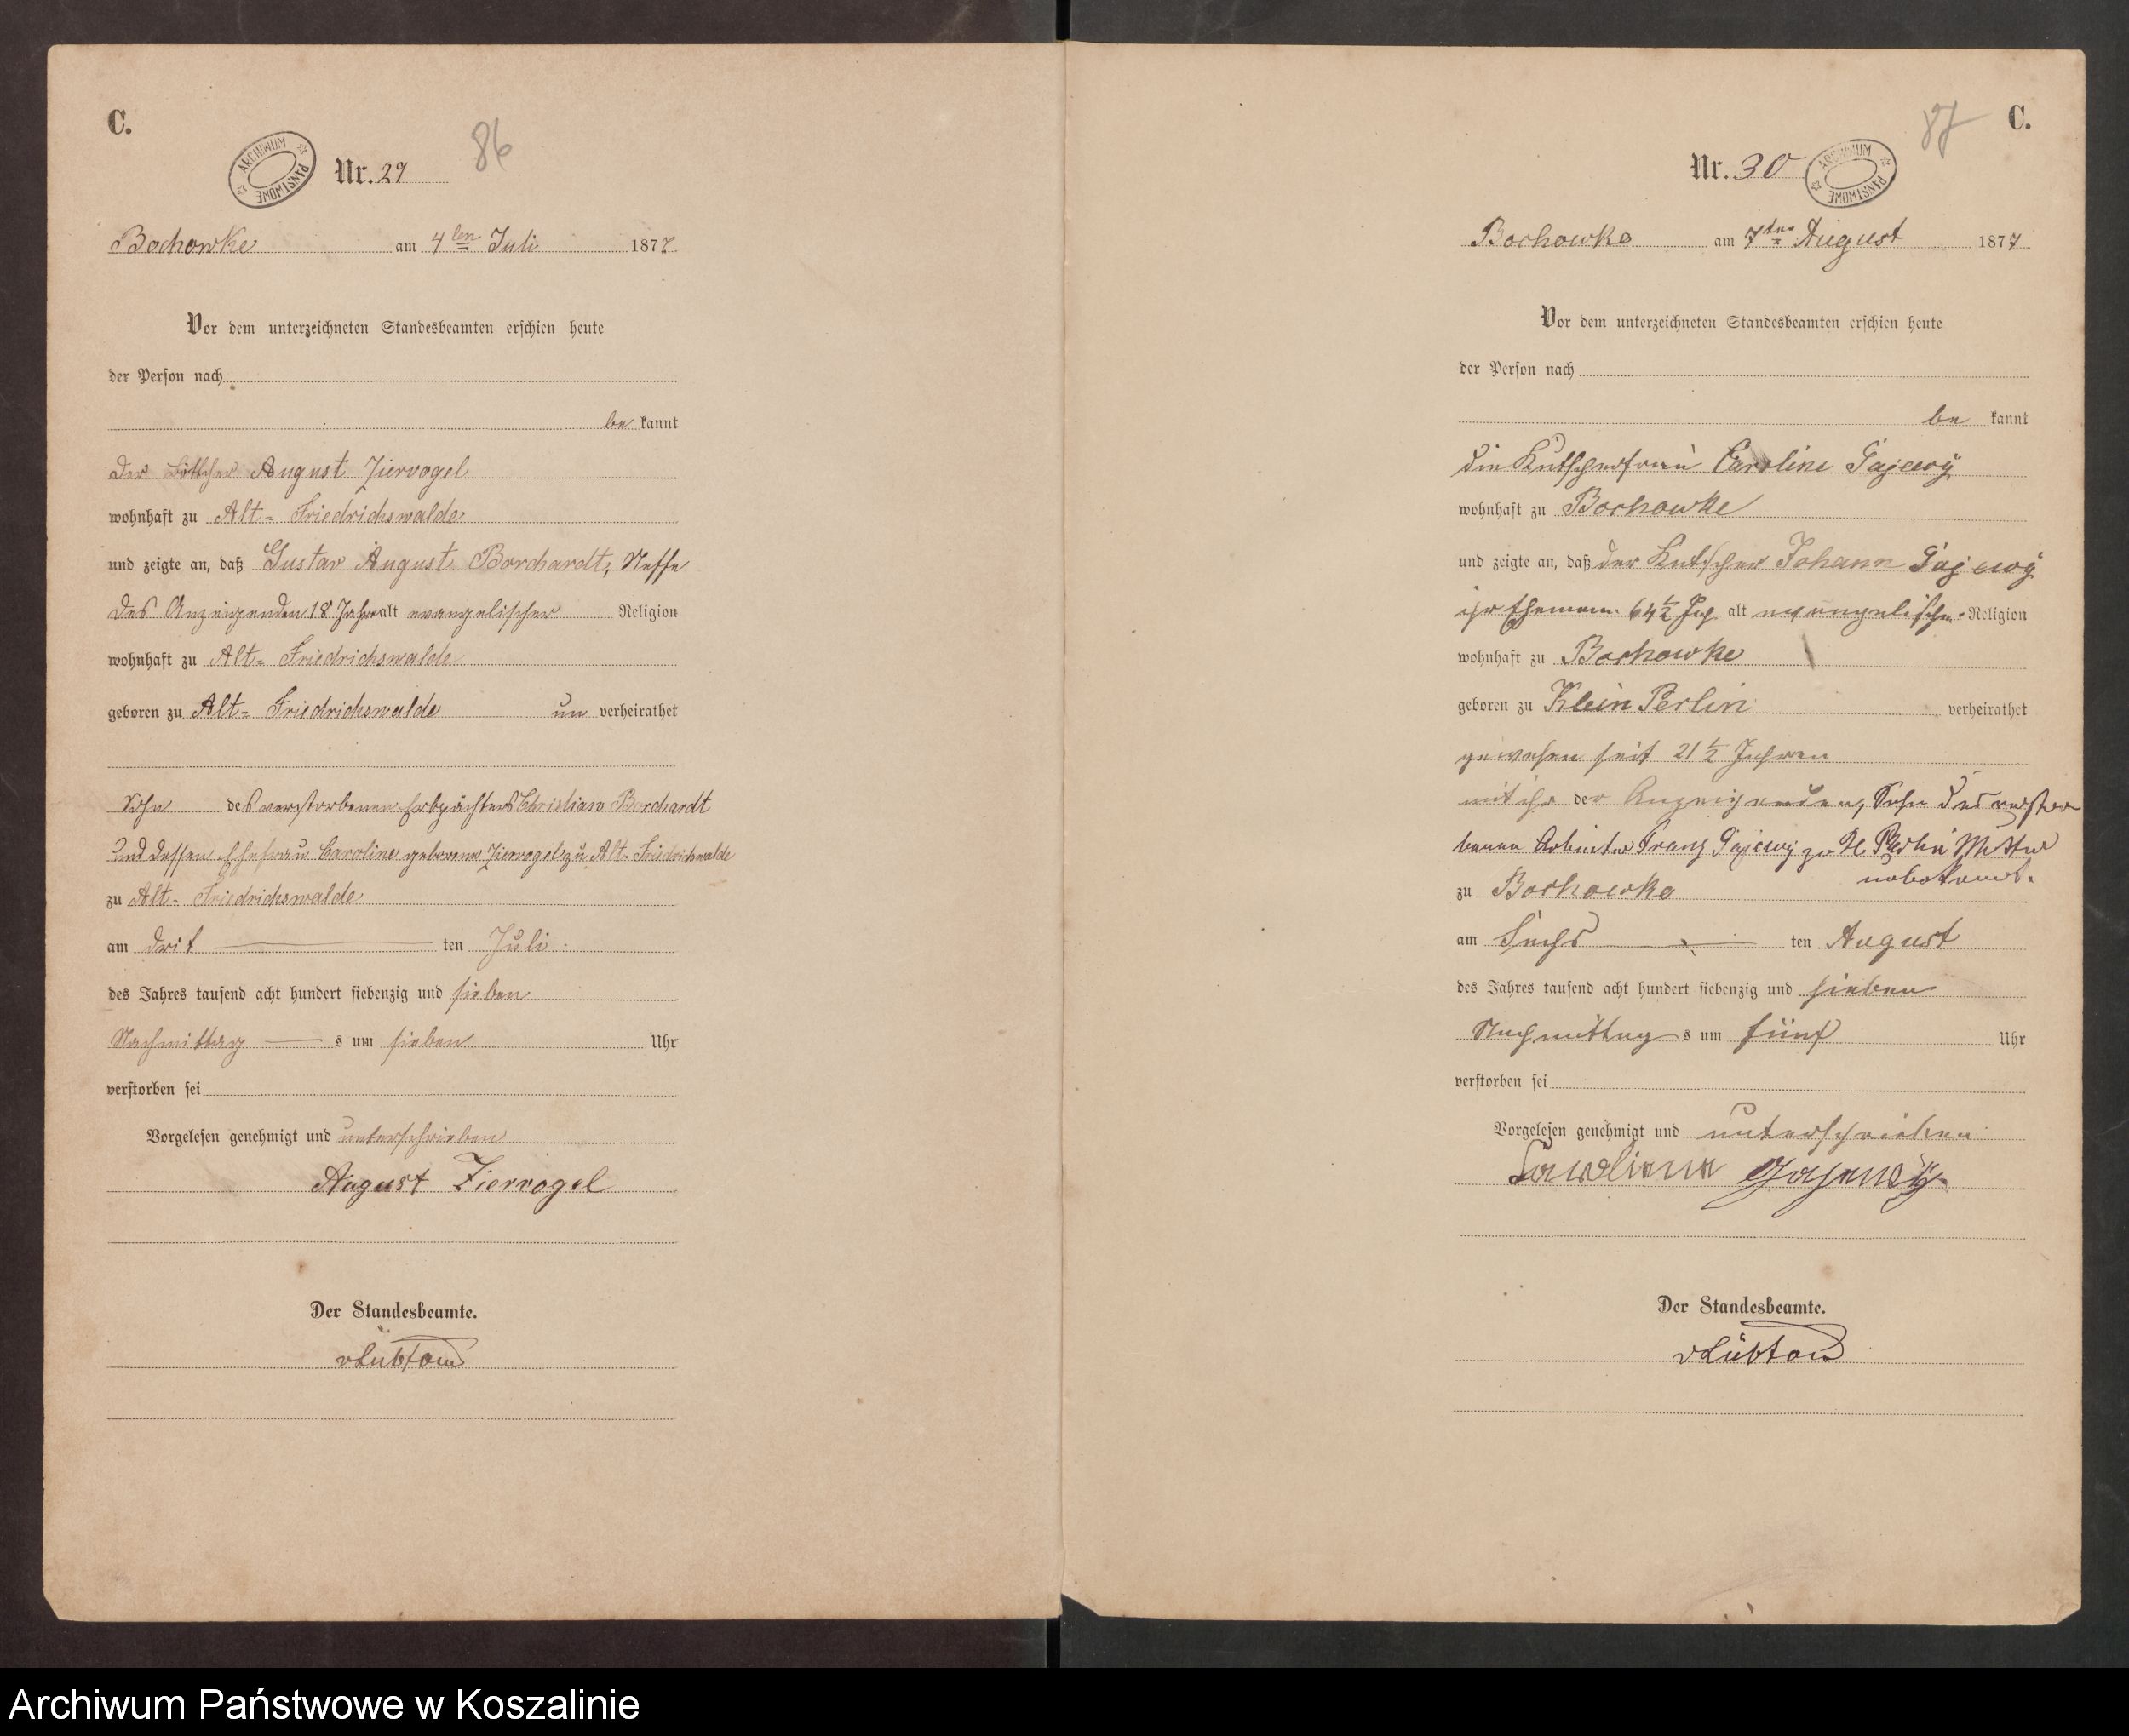 C.
ARCHIWUM PAŃSTWOWE
Nr. 29
86
Bochowke am 4ten Juli 1877
Vor dem unterzeichneten Standesbeamten erschien heute
der Person nach
be kannt
der Böttcher August Ziervogel
wohnhaft zu Alt- Friedrichswalde
und zeigte an, daß Gustav August Borchardt, Neffe
des Anzeigenden 18 Jahre alt evangelischer Religion
wohnhaft zu Alt- Friedrichswalde
geboren zu Alt- Friedrichswalde un verheirathet
Sohn des verstorbenen Erbpächters Christian Borchardt
und dessen Ehefrau Caroline geborene Ziervogel zu Alt- Friedrichswalde
zu Alt- Friedrichswalde
am drit ten Juli
des Jahres tausend acht hundert siebenzig und sieben
Nachmittag s um sieben Uhr
verstorben sei
Vorgelesen genehmigt und unterschrieben
August Ziervogel
Der Standesbeamte.
vLübtow
C.
87
Nr. 30
ARCHIWUM PAŃSTWOWE
Bochowke am 7ten August 1877
Vor dem unterzeichneten Standesbeamten erschien heute
der Person nach
be kannt
die Kutscherfrau Caroline Gajewÿ
wohnhaft zu Bochowke
und zeigte an, daß der Kutscher Johann Gajewÿ
ihr Ehemann 64 1/2 Jah alt evangelischer Religion
wohnhaft zu Bochowke
geboren zu Klein Perlin verheirathet
gewesen seit 21 1/2 Jahren
mit ihr der Anzeigenden, Sohn des verstor
benen Arbeiter Franz Gajewy zu Kl Perlin Mutter
unbekannt.
zu Bochowke
am Sechs ten August
des Jahres tausend acht hundert siebenzig und sieben
Nachmittag s um fünf Uhr
verstorben sei
Vorgelesen genehmigt und unterschrieben
Caroline Gajewsÿ
Der Standesbeamte.
vLübtow
Archiwum Państwowe w Koszalinie